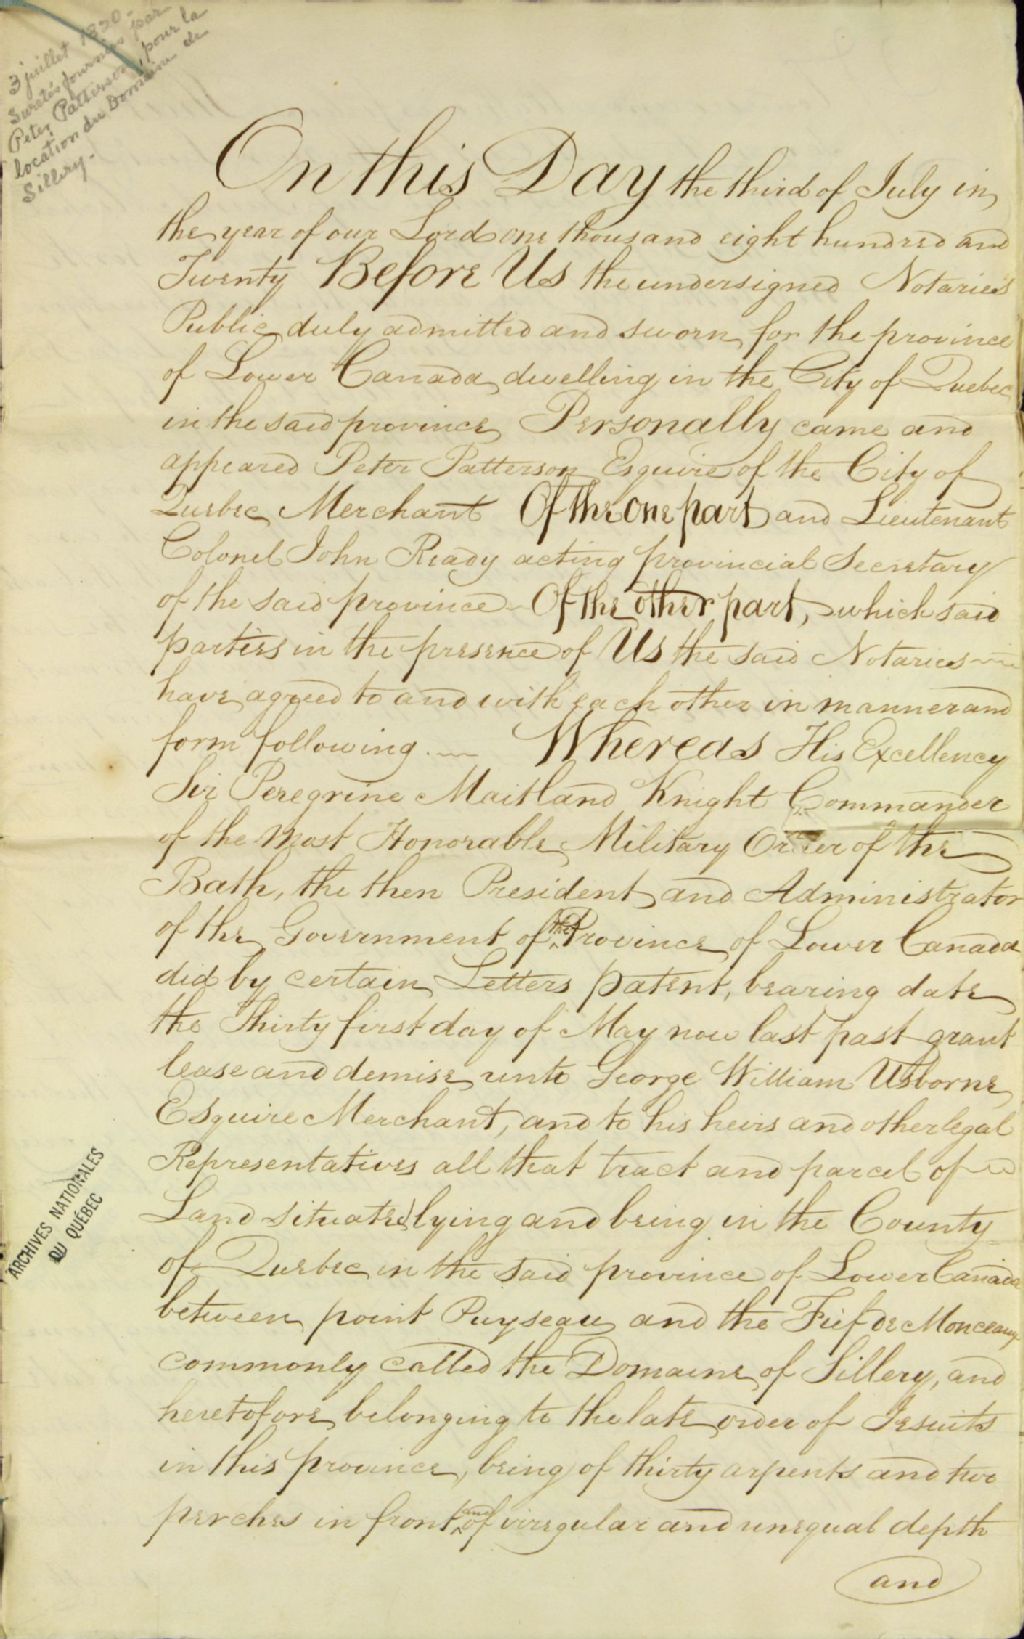 3 juillet 1820-
Suretés fournies par
Peter Patterson, pour la
location du Domaine de
Sillery-
On this Day the third of July in
the year of our Lord one thousand eight hundred and
Twenty Before Us the undersigned Notaries
Public duly admitted and sworn for the province
of Lower Canada, dwelling in the City of Quebec
in the said province Personally came and
appeared Peter Patterson Esquire of the City of
Quebec Merchant Of the one part and Lieutenant
Colonel John Ready acting provincial Secretary
of the said province Of the other part, which said
parties in the presence of Us the said Notaries
have agreed to and with each other in manner and
form following. Whereas His Excellency
Sir Peregrine Maitland Knight Commander
of the Most Honorable Military Order of the
Bath, the then President and Administrator
of the Government of the Province of Lower Canada
did by certain Letters patent, bearing date
the Thirty first day of May now last past grant
lease and demise unto George William Usborne
Esquire Merchant, and to his heirs and other legal
Representatives all that tract and parcel of
Land situated lying and being in the County
of Quebec in the said province of Lower Canada
between point Puyseau and the Fief de Monceaux
commonly called the Domaine of Sillery, and
heretofore belonging to the late order of Jesuits
in this province, being of thirty arpents and two
perches in front and of irregular and unequal depth
and
ARCHIVES NATIONALES
DU QUÉBEC